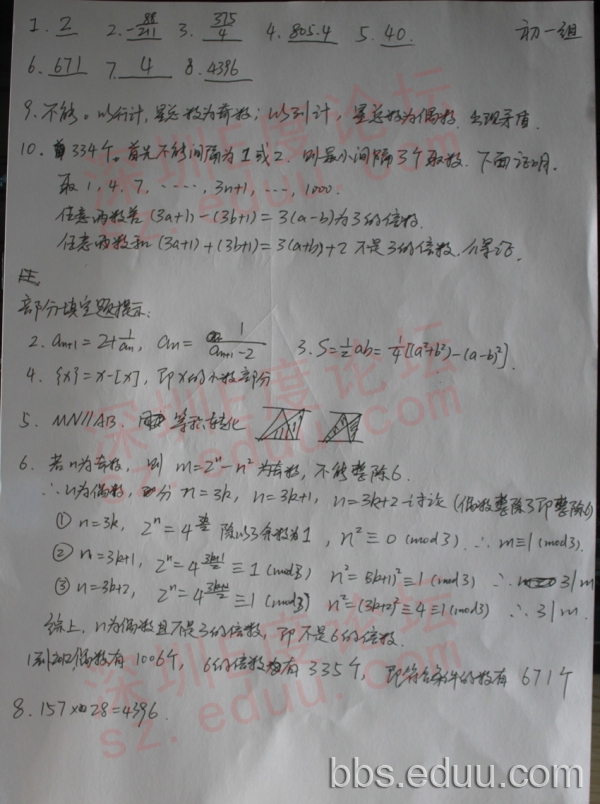 1. 2 2. -88/211 3. 315/4 4. 805.4 5. 40 初一组
6. 671 7. 4 8. 4396
9. 不能。以行计,星总数为奇数;以列计,星总数为偶数,出现矛盾.
10. 334个。首先不能间隔为1或2. 则最小间隔3个取数. 下面证明.
取 1, 4, 7, ……, 3n+1, …, 1000.
任意两数差 (3a+1)-(3b+1)=3(a-b)为3的倍数.
任意两数和 (3a+1)+(3b+1)=3(a+b)+2 不是3的倍数. 得证.
注
部分填空题提示:
2. aₙ₊₁=2+1/aₙ, aₙ=1/(aₙ₊₁-2) 3. S=½ab=¼[(a²+b²)-(a-b)²].
4. {x}=x-[x], 即x的小数部分
5. MN//AB. 等积转化
6. 若n为奇数, 则 m=2ⁿ-n²为奇数, 不能整除6.
∴n为偶数, 分 n=3k, n=3k+1, n=3k+2讨论 (偶数整除3即整除6)
① n=3k, 2ⁿ=4 除以3余数为1, n²≡0 (mod3) ∴m≡1(mod3).
② n=3k+1, 2ⁿ=4^((3k+1)/2)≡1 (mod3) n²=(3k+1)²≡1 (mod3) ∴ 3|m
③ n=3k+2, 2ⁿ=4^((3k+2)/2)≡1 (mod3) n²=(3k+2)²≡4≡1(mod3) ∴3|m.
综上, n为偶数且不是3的倍数, 即不是6的倍数.
1到2012偶数有1006个, 6的倍数有335个, 即符合条件的数有671个
8. 157×28=4396.
深圳E度论坛
sz.eduu.com
bbs.eduu.com